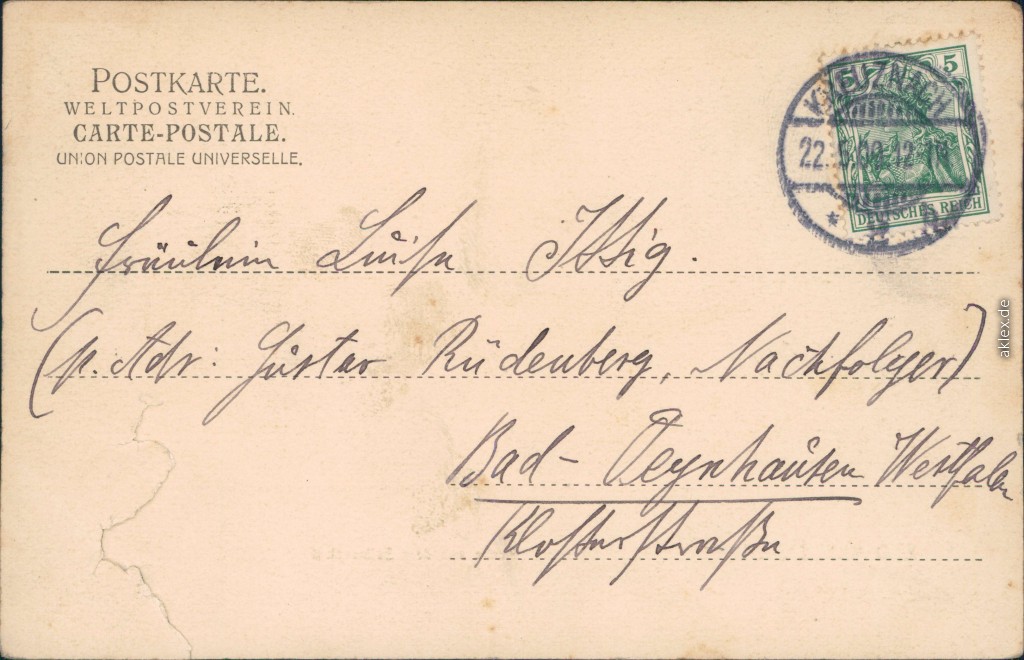 POSTKARTE.
WELTPOSTVEREIN.
CARTE-POSTALE.
UNION POSTALE UNIVERSELLE.
5
KREUZNACH
22.
DEUTSCHES REICH
Fräulein Luise Itzig.
(p. Adr: Gustav Rüdenberg, Nachfolger)
Bad-Oeynhausen Westfalen
Klosterstraße
aklex.de